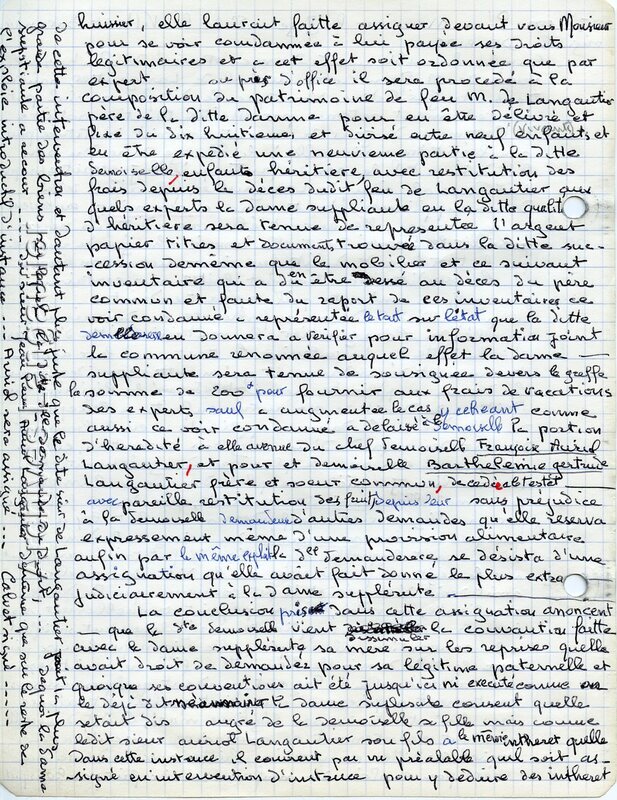 huissier, elle lauroit faitte assigner devant vous Monsieur
pour se voir condamnée à lui payée ses droits
legitimaires et a cet effet soit ordonnée que par
expert ou pris d'office il sera procedé à la
composition du patrimoine de feu M. de Langautier
père de la ditte damme pour en être délivré et
fixé du dix huitiemes et divisé entre neuf enfants (vivant) et
en être expédié une neuvieme partie à la ditte
demoiselle, enfants héritière, avec restitution des
frais depuis le décès dudit feu de Langautier aux
quels experts la dame suppliante ou la ditte qualité
d'héritière sera tenue de representée l'argent
papier titres et documents trouvée dans la ditte suc-
cession demême que le mobilier et ce suivant
inventaire qui a du en être dressé au décès du père
commun et faute du report de ces inventaires ce
voir condamné a représentée le tout sur l'état que la ditte
demoiselle en donnera a verifier pour information joint
la commune renommée auquel effet la dame —
suppliante sera tenue de consignée devers le greffe
la somme de 200# pour fournir aux frais de vacations
des experts sauf a augmentée le cas y echeant comme
aussi ce voir condamné a delaisé à la demoiselle la portion
d'heredité à elle avenue du chef demoiselle Françoise Auriol
Langautier, et pour et demoiselle Barthelemie gertrude
Langautier frère et soeur commun, decedé abtestat
avec pareille restitution des fruits depuis leur sans préjudice
à la demoiselle demandeuse d'autres demandes qu'elle reserva
expressement même d'une provision alimentaire
aufin par le même exploit la dee demanderece se désista d'une
assignation qu'elle avait fait donné le plus extra
judiciairement à la dame supplérte
La conclusion prise dans cette assignation anoncent
— que la dte demoiselle vient dissimuler la convantion faitte
avec le dame supplérte sa mère sur les reprises quelle
avait droit de demandez pour sa légitime paternelle et
quoique ses conventions ait été jusqu'ici ni executé comme on
le déjà dit neanmoins la dame suplérte consent quelle
setait dis augré de le demoiselle se fille mais comme
ledit sieur auriol Langautier son fils a le même intheret quelle
dans cette instance il convient par un préalable quil soit as-
signé en intervention d'instance pour y déduire des intheret
de cette intervention et dautant plus juste que le dite sieur de Langautier jouit la plus
grande partie des biens sur lesquels la ditte dee demandes de droit, ... dequoi la dame
suppliante a recour ... du sieur Jean Auriol Langautier
et exploie introductif d'instance .... Auriol sera assigné .... Calvet signé ....